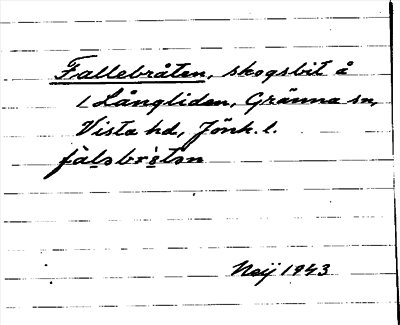 Fallebråten, skogsbit å
1 Långliden, Gränna sn,
Vista hd, Jönk. l.
Neij 1943